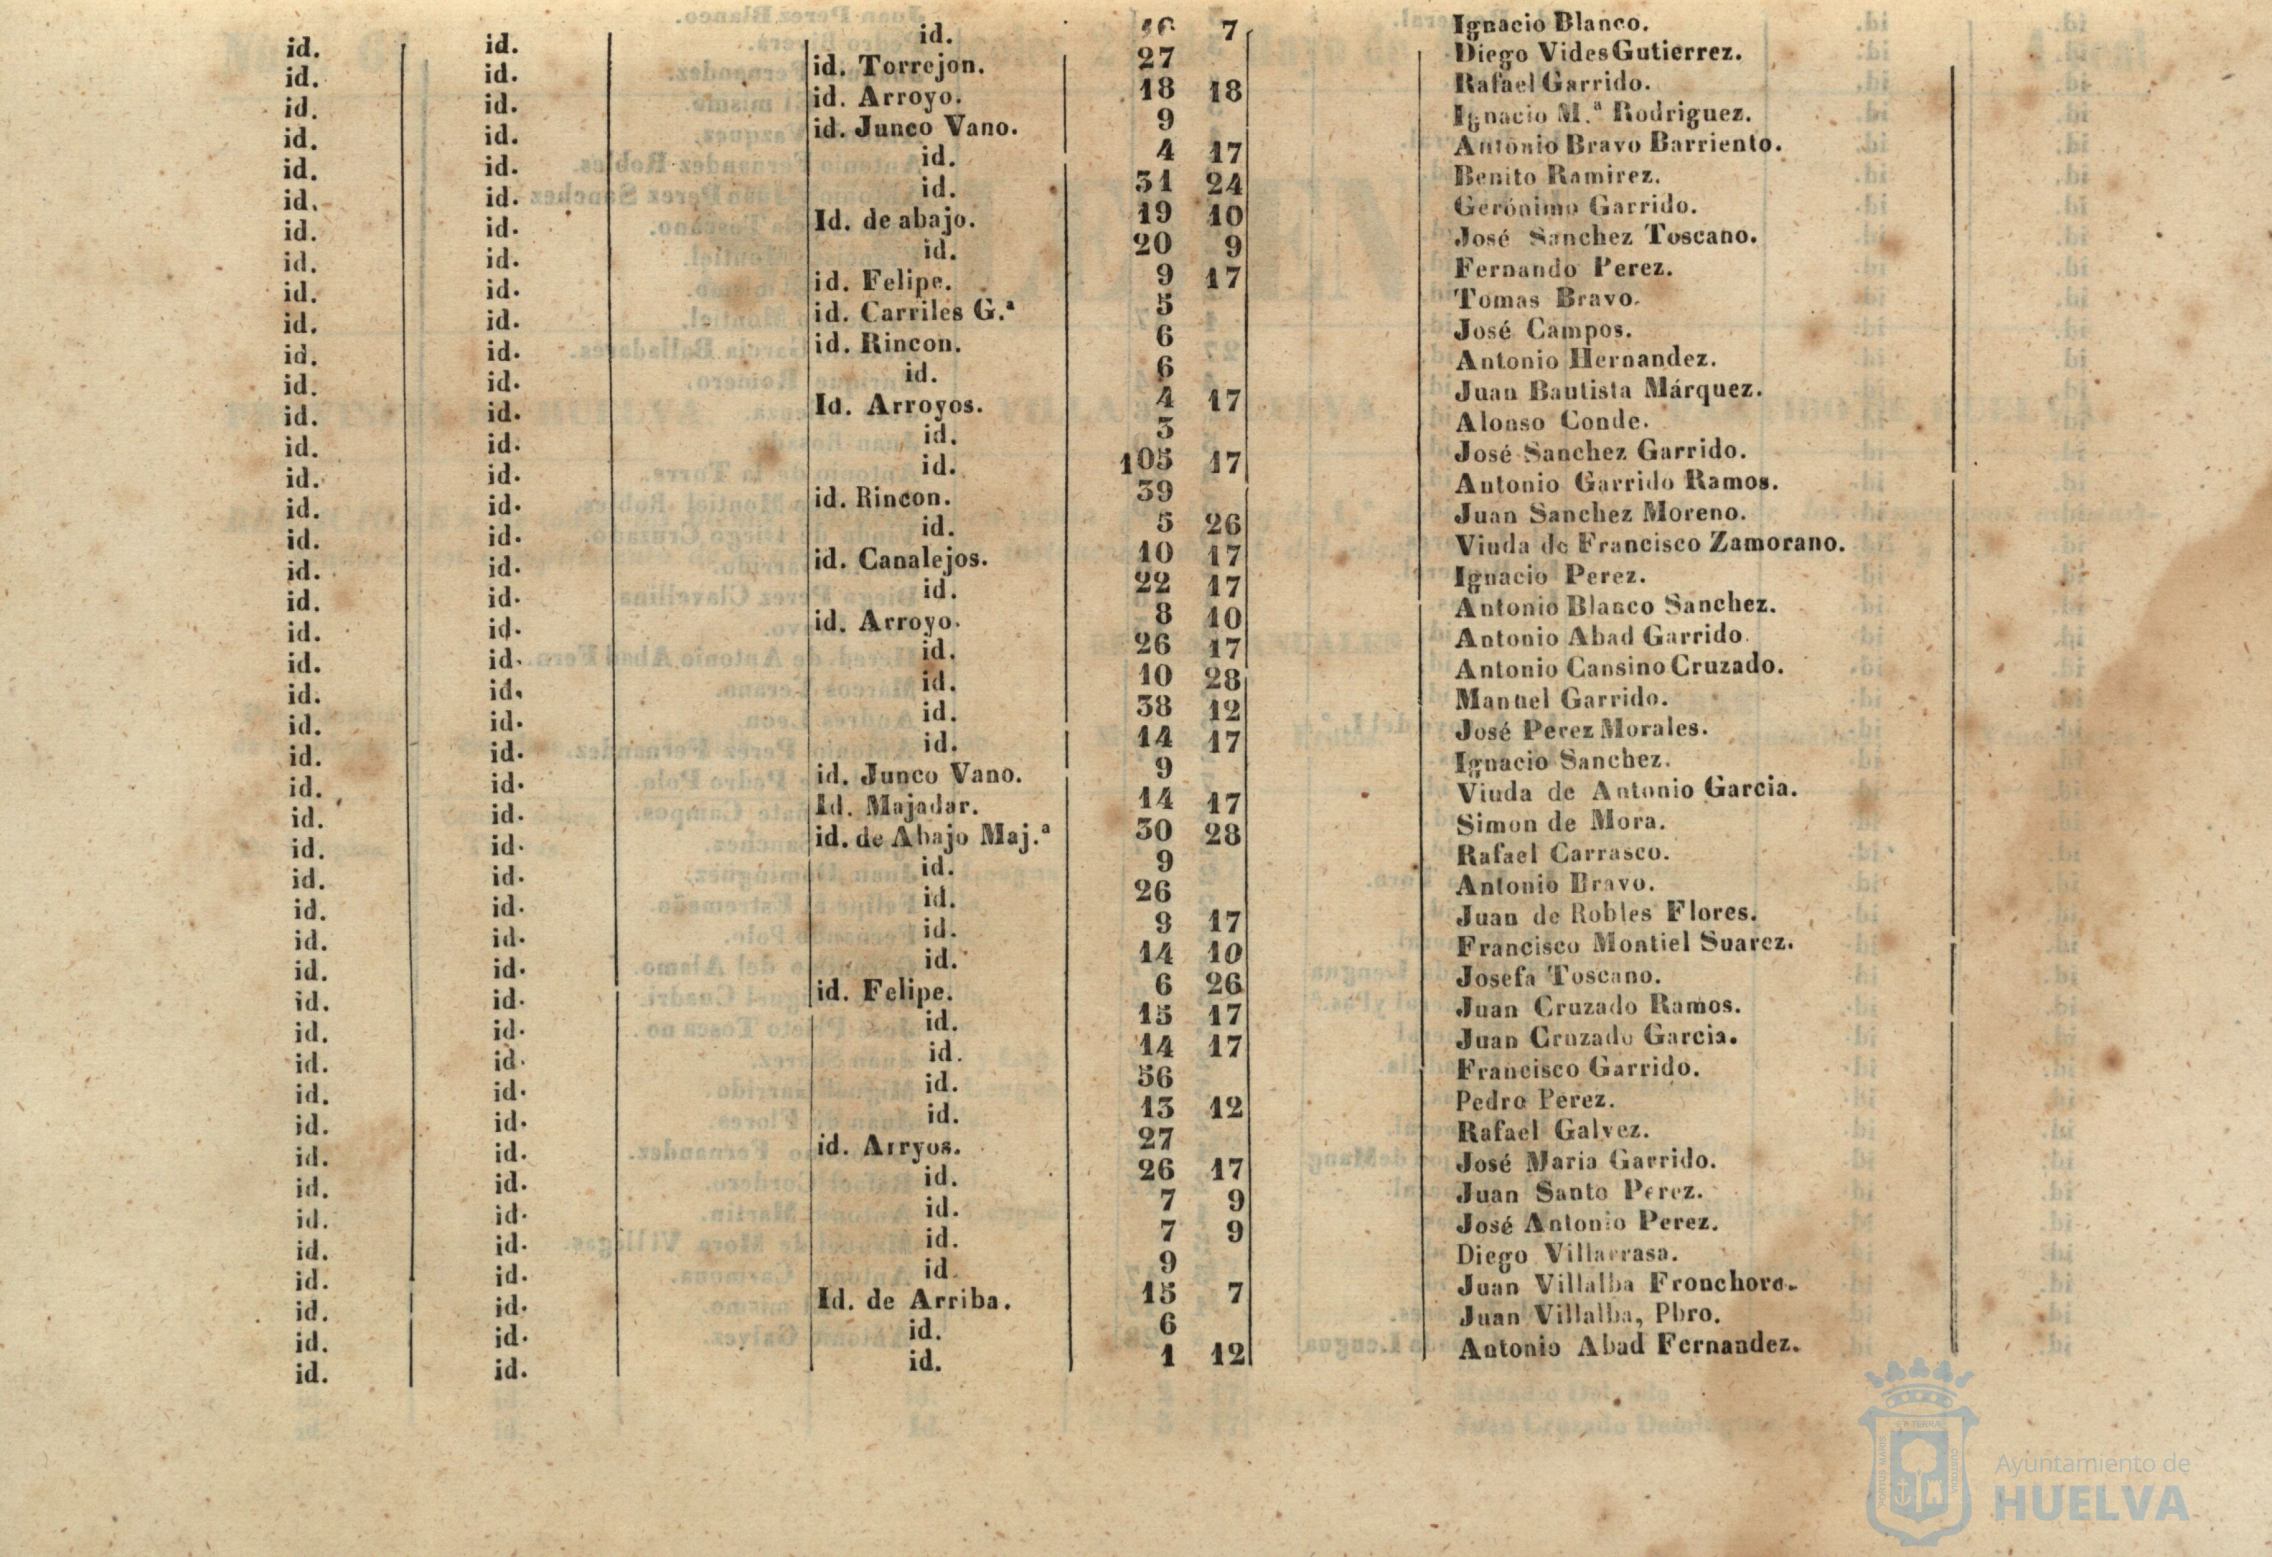 id. id. id. 7 Ignacio Blanco.
id. id. id. Torrejon. 27 Diego Vides Gutierrez.
id. id. id. Arroyo. 18 18 Rafael Garrido.
id. id. id. Junco Vano. 9 Ignacio M.ª Rodriguez.
id. id. id. 4 17 Antonio Bravo Barriento.
id. id. id. 31 24 Benito Ramirez.
id. id. Id. de abajo. 19 10 Gerónimo Garrido.
id. id. id. 20 9 José Sanchez Toscano.
id. id. id. Felipe. 9 17 Fernando Perez.
id. id. id. Carriles G.ª 5 Tomas Bravo.
id. id. id. Rincon. 6 José Campos.
id. id. id. 6 Antonio Hernandez.
id. id. Id. Arroyos. 4 17 Juan Bautista Márquez.
id. id. id. 3 Alonso Conde.
id. id. id. 105 17 José Sanchez Garrido.
id. id. id. Rincon. 39 Antonio Garrido Ramos.
id. id. id. 5 26 Juan Sanchez Moreno.
id. id. id. Canalejos. 10 17 Viuda de Francisco Zamorano.
id. id. id. 22 17 Ignacio Perez.
id. id. id. Arroyo. 8 10 Antonio Blanco Sanchez.
id. id. id. 26 17 Antonio Abad Garrido.
id. id. id. 10 28 Antonio Cansino Cruzado.
id. id. id. 38 12 Manuel Garrido.
id. id. id. 14 17 José Perez Morales.
id. id. id. Junco Vano. 9 Ignacio Sanchez.
id. id. Id. Majadar. 14 17 Viuda de Antonio Garcia.
id. id. id. de Abajo Maj.ª 30 28 Simon de Mora.
id. id. id. 9 Rafael Carrasco.
id. id. id. 26 Antonio Bravo.
id. id. id. 9 17 Juan de Robles Flores.
id. id. id. 14 10 Francisco Montiel Suarez.
id. id. id. Felipe. 6 26 Josefa Toscano.
id. id. id. 15 17 Juan Cruzado Ramos.
id. id. id. 14 17 Juan Cruzado Garcia.
id. id. id. 56 Francisco Garrido.
id. id. id. 13 12 Pedro Perez.
id. id. id. Arryos. 27 Rafael Galvez.
id. id. id. 26 17 José Maria Garrido.
id. id. id. 7 9 Juan Santo Perez.
id. id. id. 7 9 José Antonio Perez.
id. id. id. 9 Diego Villarrasa.
id. id. Id. de Arriba. 15 7 Juan Villalba Fronchoro.
id. id. id. 6 Juan Villalba, Pbro.
id. id. id. 1 12 Antonio Abad Fernandez.
Ayuntamiento de
HUELVA